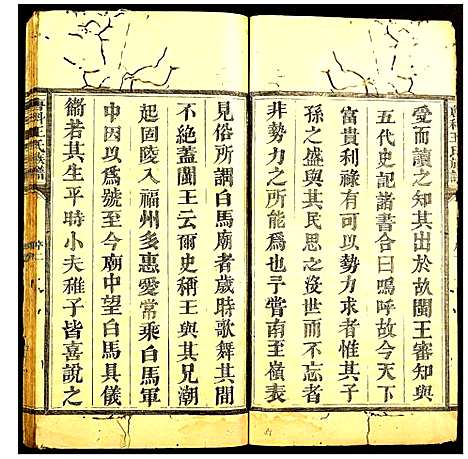 愛而讀之知其出於故閩王審知與
五代史記諸書合曰嗚呼故今天下
富貴利祿有可以勢力求者惟其子
孫之盛與其民思之沒世而不忘者
非勢力之所能爲也予嘗南至嶺表
見俗所謂白馬廟者歲時歌舞其間
不絶蓋閩王云爾史稱王與其兄潮
起固陵入福州多惠愛常乘白馬軍
中因以爲號至今廟中望白馬具儀
衞若其生平時小夫稚子皆喜說之
王氏族譜
序二